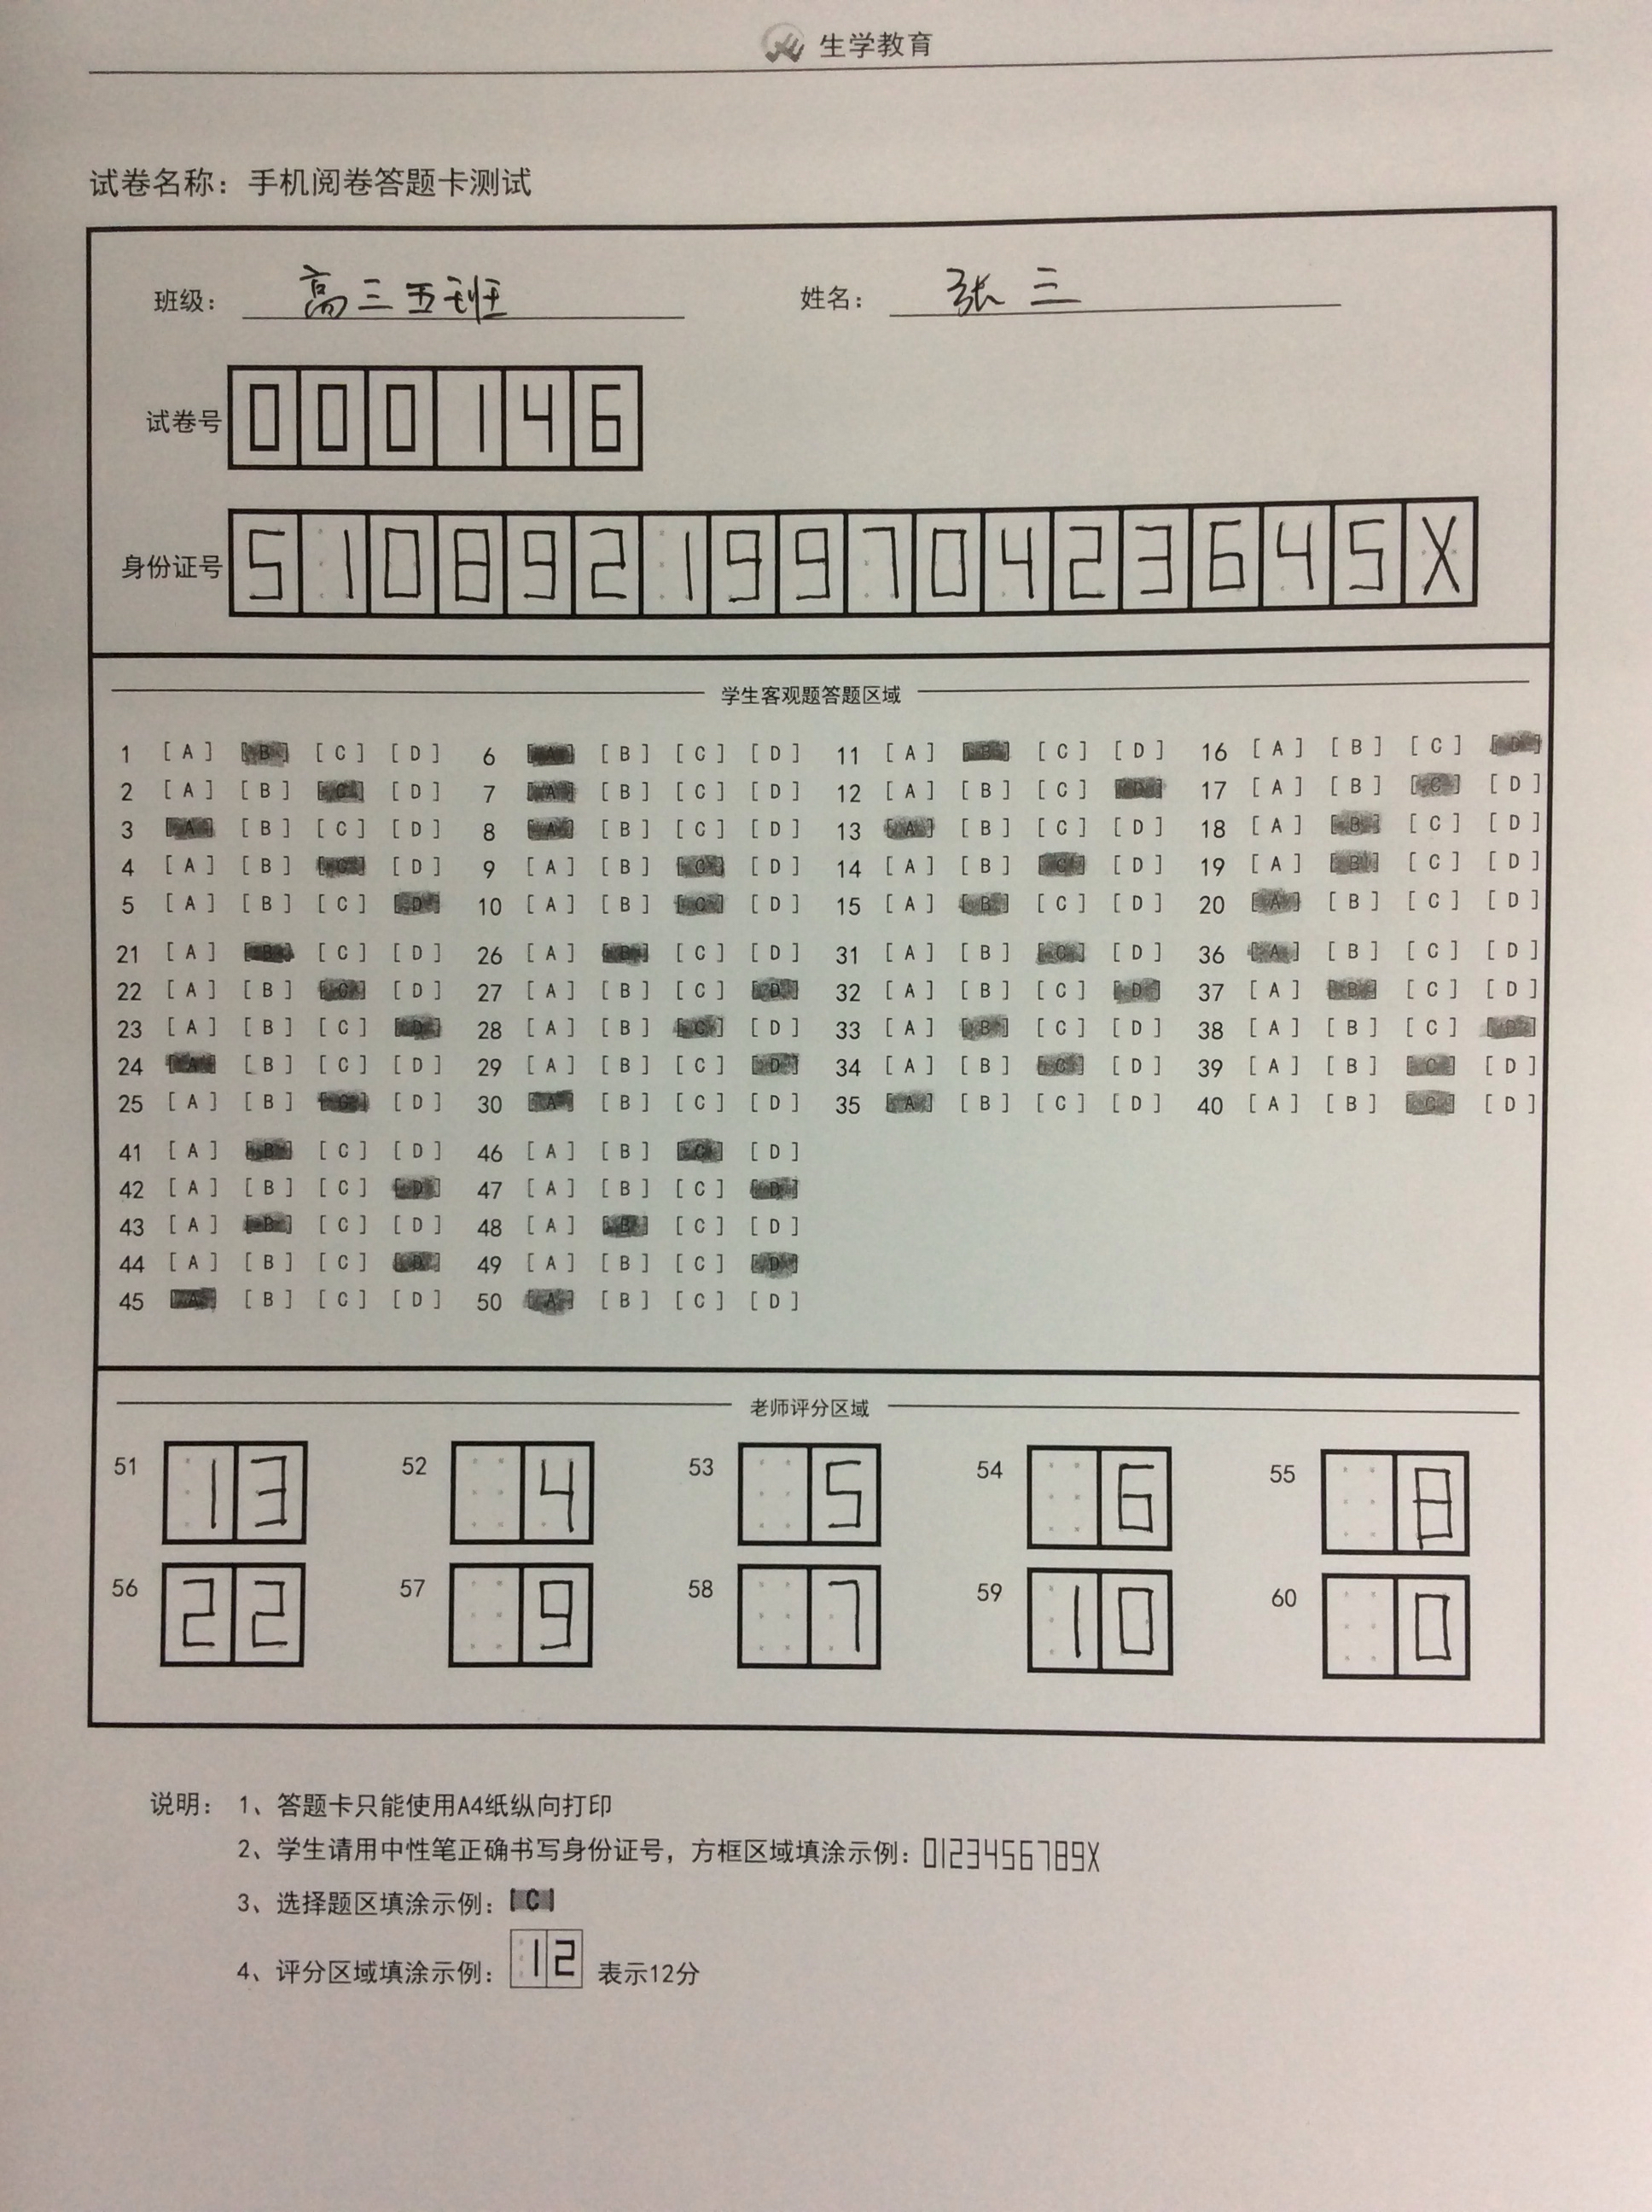 生学教育
试卷名称：手机阅卷答题卡测试
班级： 高三五班 姓名： 张三
试卷号 000146
身份证号 51089219970423645X
学生客观题答题区域
1 [A] [B] [C] [D] 6 [A] [B] [C] [D] 11 [A] [B] [C] [D] 16 [A] [B] [C] [D]
2 [A] [B] [C] [D] 7 [A] [B] [C] [D] 12 [A] [B] [C] [D] 17 [A] [B] [C] [D]
3 [A] [B] [C] [D] 8 [A] [B] [C] [D] 13 [A] [B] [C] [D] 18 [A] [B] [C] [D]
4 [A] [B] [C] [D] 9 [A] [B] [C] [D] 14 [A] [B] [C] [D] 19 [A] [B] [C] [D]
5 [A] [B] [C] [D] 10 [A] [B] [C] [D] 15 [A] [B] [C] [D] 20 [A] [B] [C] [D]
21 [A] [B] [C] [D] 26 [A] [B] [C] [D] 31 [A] [B] [C] [D] 36 [A] [B] [C] [D]
22 [A] [B] [C] [D] 27 [A] [B] [C] [D] 32 [A] [B] [C] [D] 37 [A] [B] [C] [D]
23 [A] [B] [C] [D] 28 [A] [B] [C] [D] 33 [A] [B] [C] [D] 38 [A] [B] [C] [D]
24 [A] [B] [C] [D] 29 [A] [B] [C] [D] 34 [A] [B] [C] [D] 39 [A] [B] [C] [D]
25 [A] [B] [C] [D] 30 [A] [B] [C] [D] 35 [A] [B] [C] [D] 40 [A] [B] [C] [D]
41 [A] [B] [C] [D] 46 [A] [B] [C] [D]
42 [A] [B] [C] [D] 47 [A] [B] [C] [D]
43 [A] [B] [C] [D] 48 [A] [B] [C] [D]
44 [A] [B] [C] [D] 49 [A] [B] [C] [D]
45 [A] [B] [C] [D] 50 [A] [B] [C] [D]
老师评分区域
51 13 52 4 53 5 54 6 55 8
56 22 57 9 58 7 59 10 60 0
说明： 1、答题卡只能使用A4纸纵向打印
2、学生请用中性笔正确书写身份证号，方框区域填涂示例：0123456789X
3、选择题区填涂示例：[C]
4、评分区域填涂示例： 12 表示12分